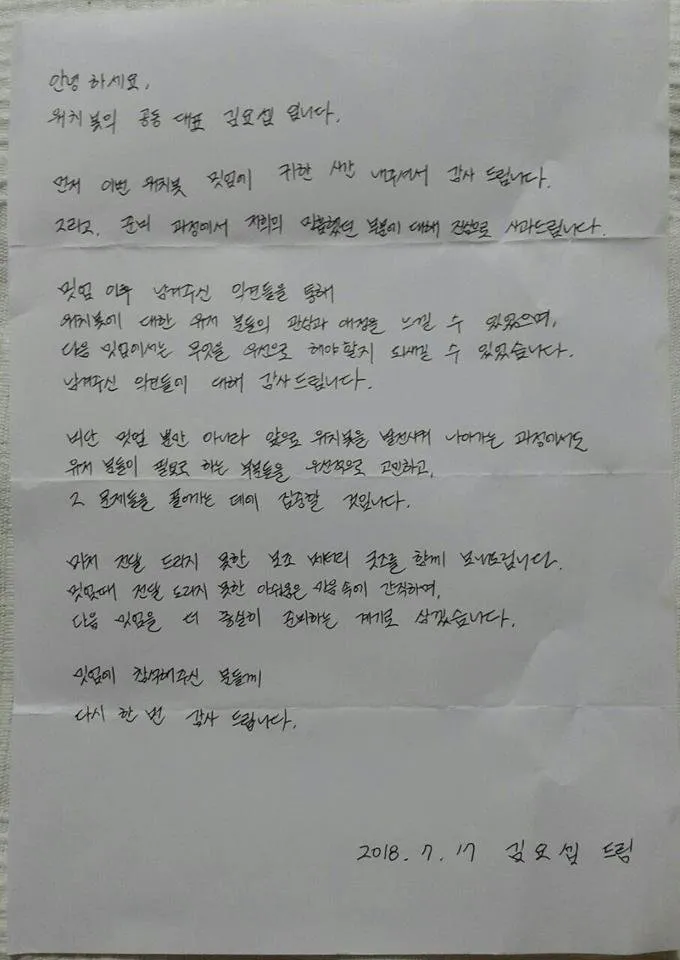 안녕하세요,
위치봇의 공동 대표 김요셉 입니다.
먼저 이번 위치봇 밋업에 귀한 시간 내주셔서 감사 드립니다.
그리고, 준비 과정에서 저희의 미흡했던 부분에 대해 진심으로 사과드립니다.
밋업 이후 남겨주신 의견들을 통해
위치봇에 대한 유저 분들의 관심과 애정을 느낄 수 있었으며,
다음 밋업에서는 무엇을 우선으로 해야 할지 되새길 수 있었습니다.
남겨주신 의견들에 대해 감사 드립니다.
비단 밋업 뿐만 아니라 앞으로 위치봇을 발전시켜 나아가는 과정에서도
유저 분들이 필요로 하는 부분들을 우선적으로 고민하고,
그 문제들을 풀어가는 데에 집중할 것입니다.
미처 전달 드리지 못한 보조 배터리 굿즈를 함께 보내드립니다.
밋업때 전달 드리지 못한 아쉬움은 마음 속에 간직하며,
다음 밋업을 더 충실히 준비하는 계기로 삼겠습니다.
밋업에 참석해주신 분들께
다시 한 번 감사 드립니다.
2018. 7. 17 김요셉 드림